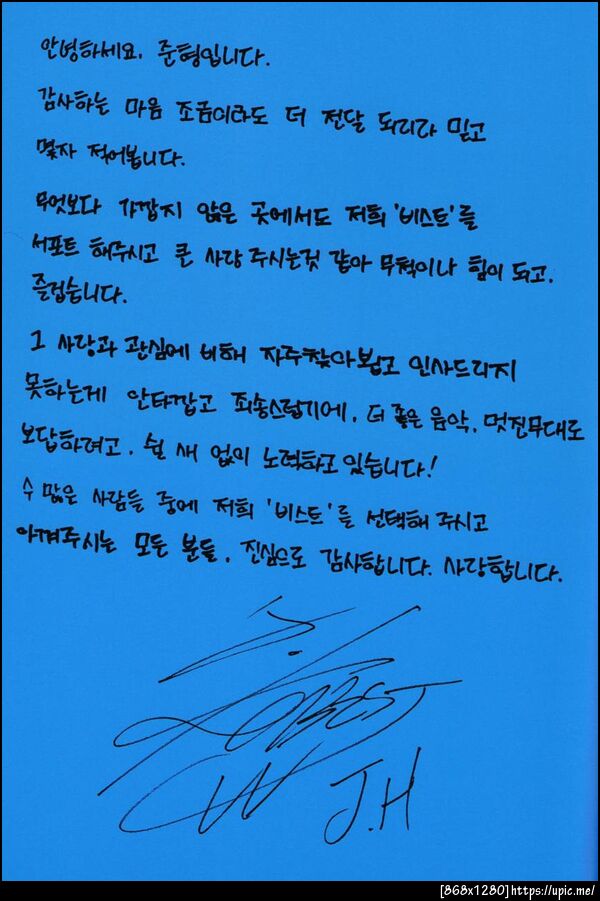 안녕하세요. 준형입니다.
감사하는 마음 조금이라도 더 전달 되리라 믿고
몇자 적어봅니다.
무엇보다 가깝지 않은 곳에서도 저희 '비스트'를
서포트 해주시고 큰 사랑 주시는것 같아 무척이나 힘이 되고,
즐겁습니다.
그 사랑과 관심에 비해 자주찾아뵙고 인사드리지
못하는게 안타깝고 죄송스럽기에, 더 좋은 음악, 멋진무대로
보답하려고, 쉴 새 없이 노력하고 있습니다!
수 많은 사람들 중에 저희 '비스트'를 선택해 주시고
아껴주시는 모든 분들, 진심으로 감사합니다. 사랑합니다.
J.H
[868x1280]https://upic.me/